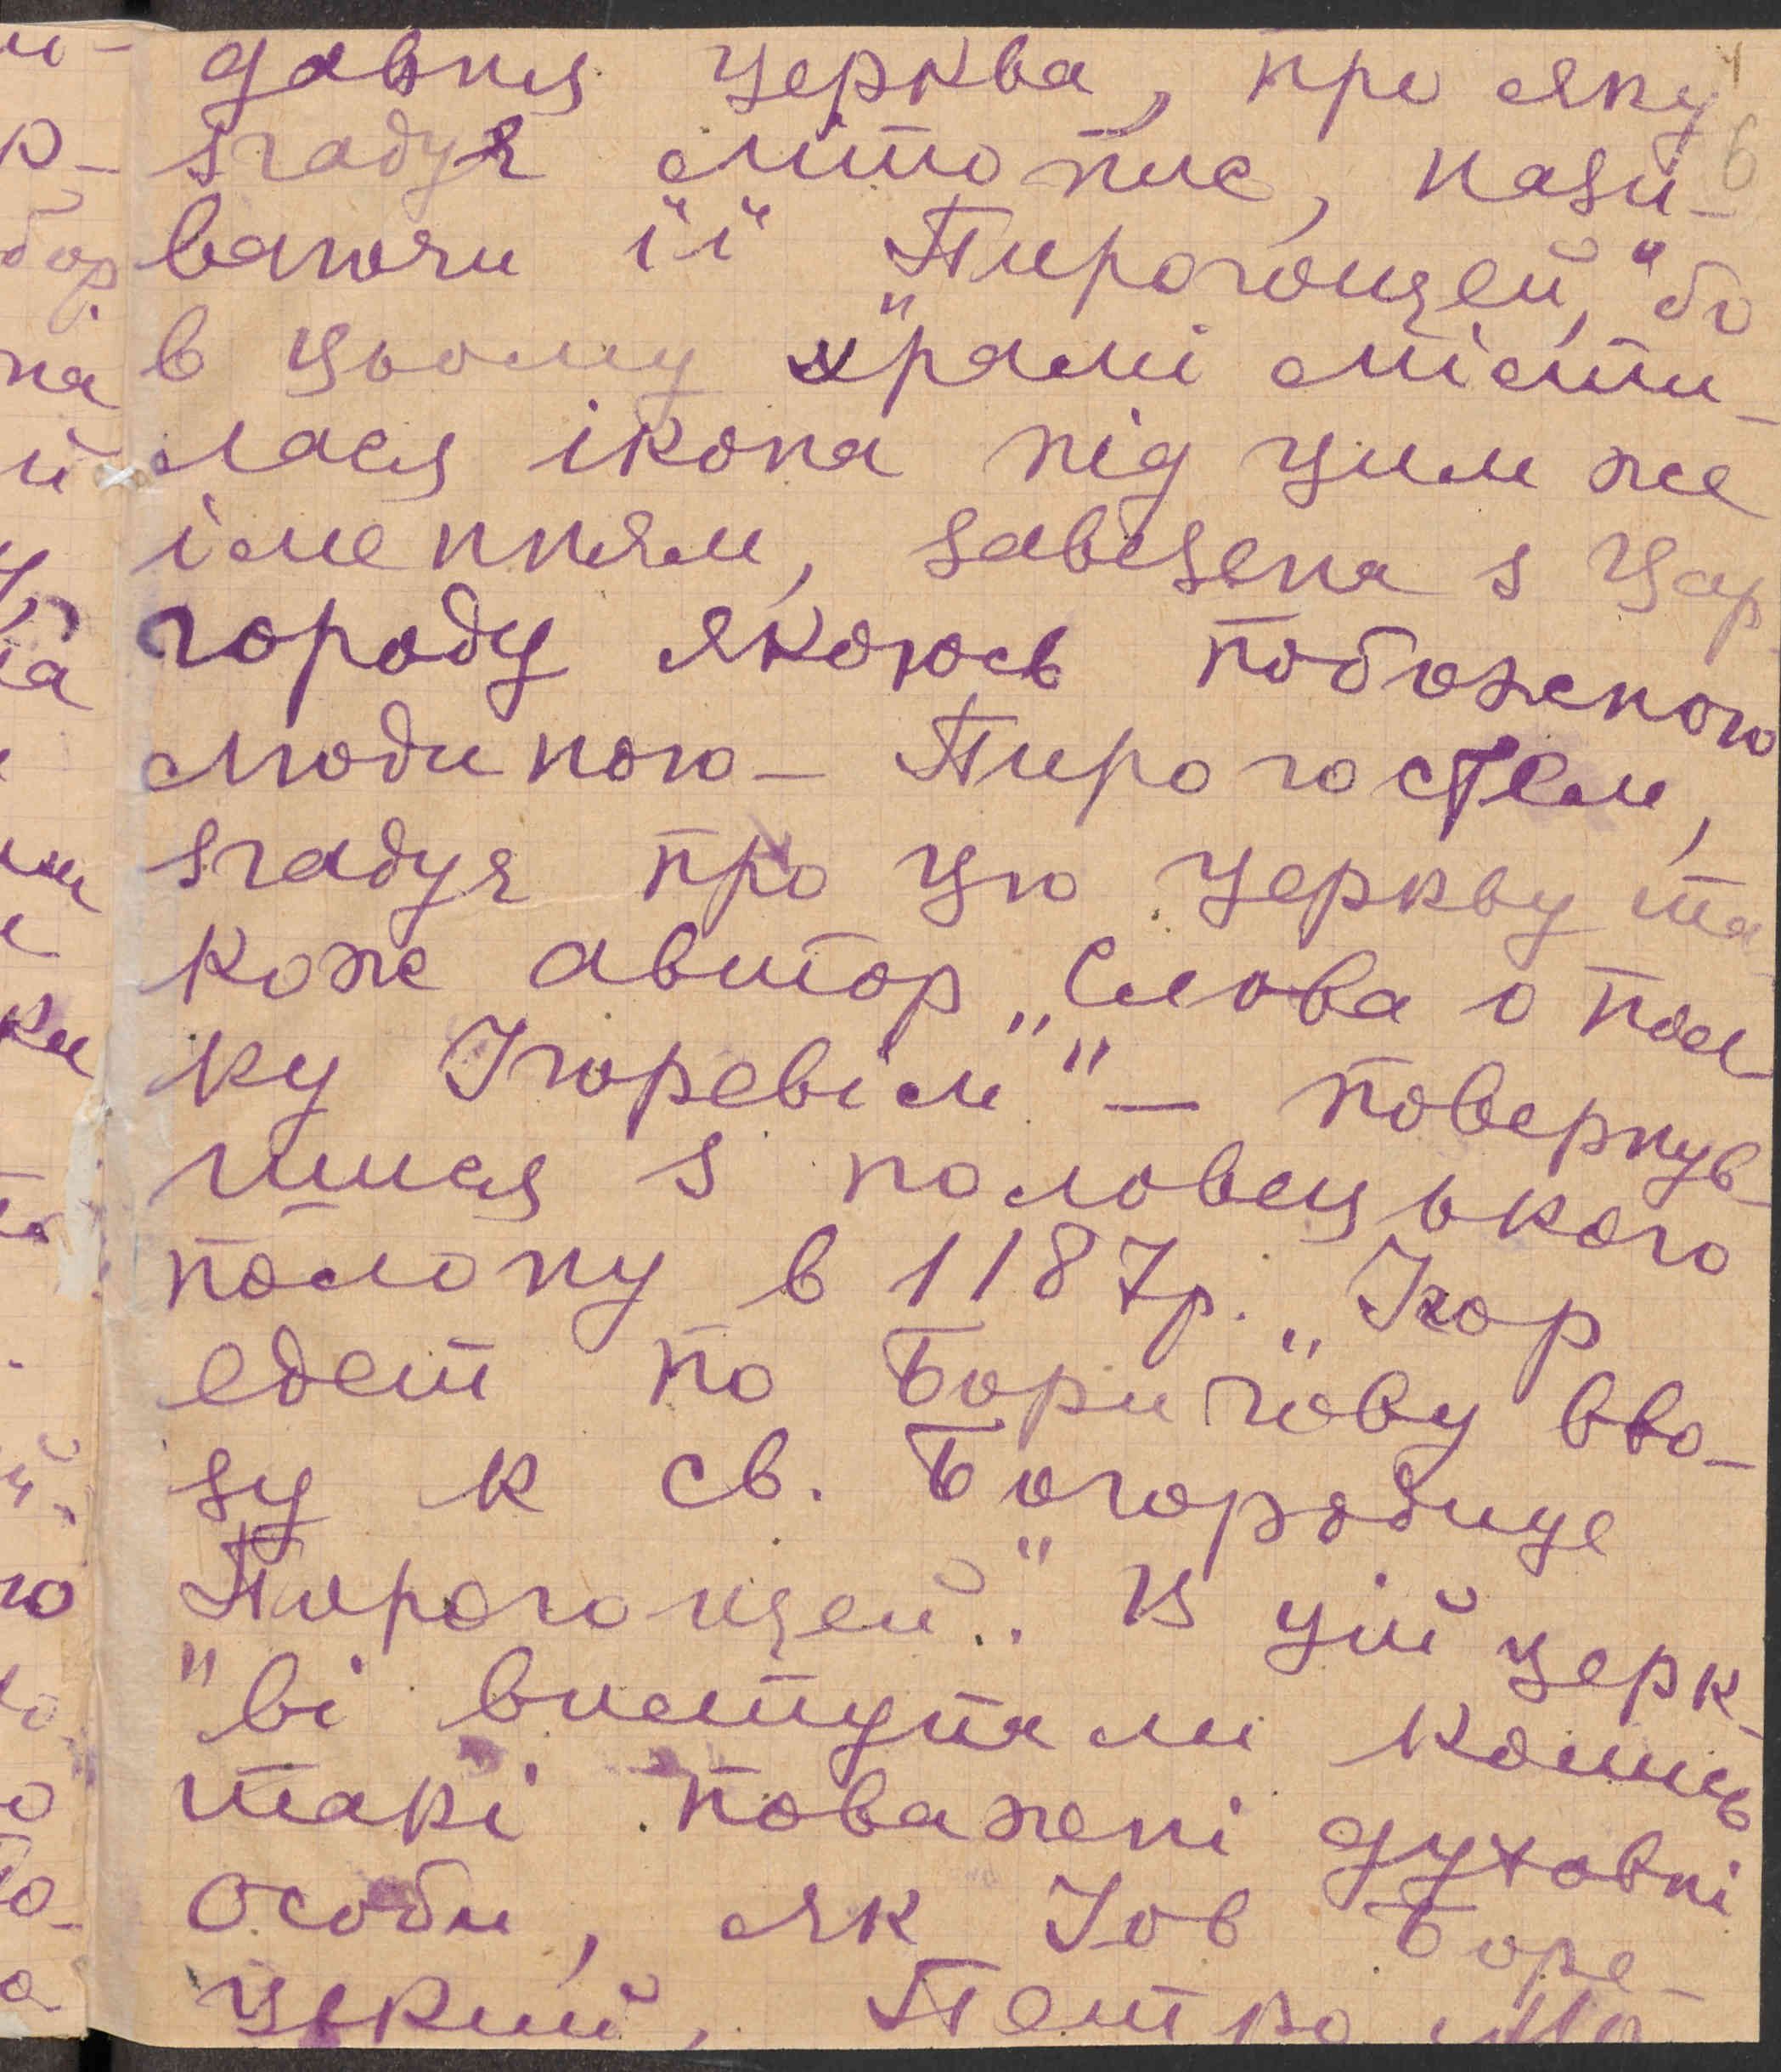 давня церква, про яку
згадує літопис, нази-
ваючи її „Пирогощей“, бо
в цьому храмі місти-
лася ікона під цим же
іменням, завезена з Цар-
городу якоюсь побожною
людиною – Пирогостем,
згадує про цю церкву та-
коже автор „Слова о пол-
ку Ігоревім“ – повернув-
шися з половецького
полону в 1187р. „Ігор
едет по Боричову вво-
зу к св. Богородице
Пирогощей“. В цій церк-
ві виступали колись
такі поважені духовні
особи, як Іов Боре-
цький, Петро Мо